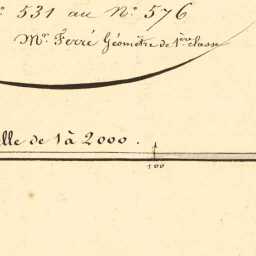 ° 531 au N° 576
Mr. Ferré Géomètre de 1ère classe
elle de 1 à 2000.
100